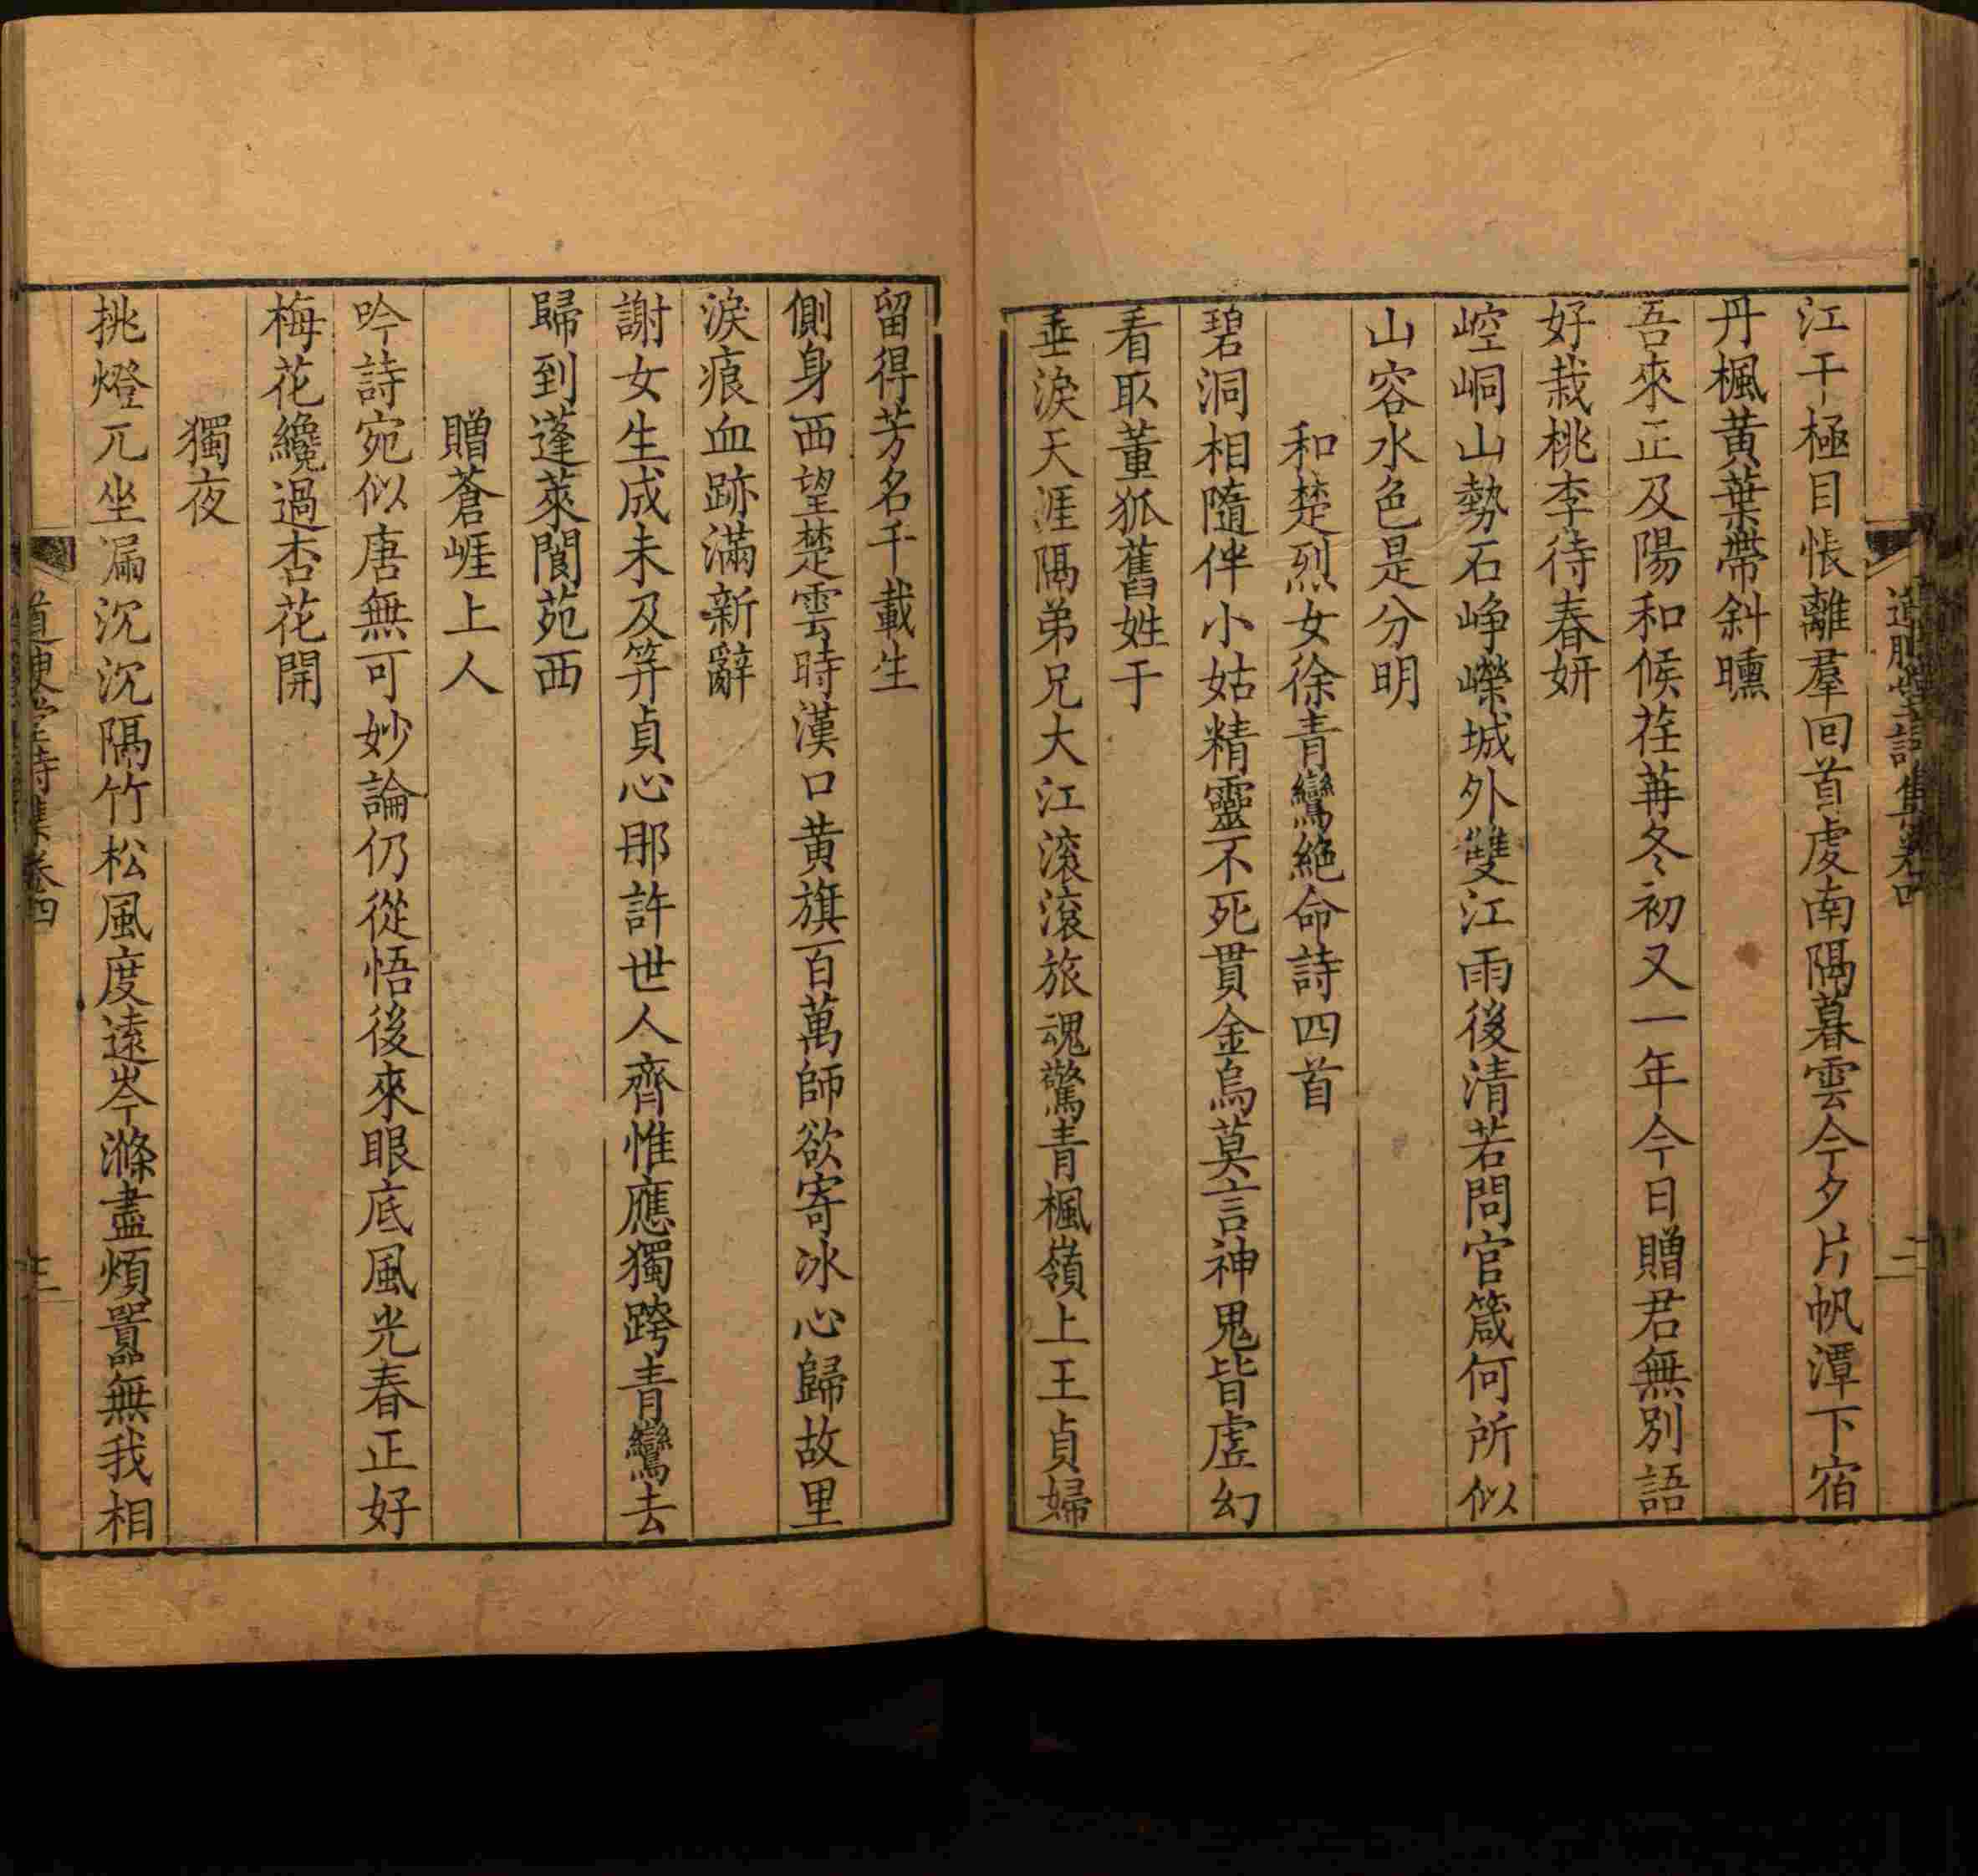 道腴堂詩集卷四 二
江干極目悵離羣回首虔南隔暮雲今夕片帆潭下宿
丹楓黃葉帶斜曛
吾來正及陽和候荏苒冬初又一年今日贈君無別語
好栽桃李待春妍
崆峒山勢石崢嶸城外雙江雨後清若問官箴何所似
山容水色是分明
和楚烈女徐青鸞絕命詩四首
碧洞相隨伴小姑精靈不死貫金烏莫言神鬼皆虛幻
看取董狐舊姓于
垂淚天涯隔弟兄大江滾滾旅魂驚青楓嶺上王貞婦
留得芳名千載生
側身西望楚雲時漢口黃旗百萬師欲寄冰心歸故里
淚痕血跡滿新辭
謝女生成未及笄貞心那許世人齊惟應獨跨青鸞去
歸到蓬萊閬苑西
贈蒼崕上人
吟詩宛似唐無可妙論仍從悟後來眼底風光春正好
梅花纔過杏花開
獨夜
挑燈兀坐漏沉沉隔竹松風度遠岑滌盡煩囂無我相
道腴堂詩集卷四 三